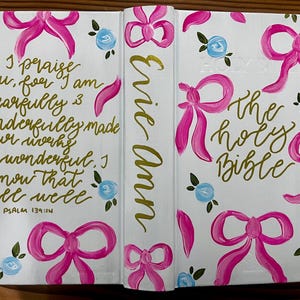 I praise
u, for I am
earfully &
nderfully made
ur works
wonderful. I
now that
ll well
PSALM 139:14
Evie Ann
the
holy
Bible